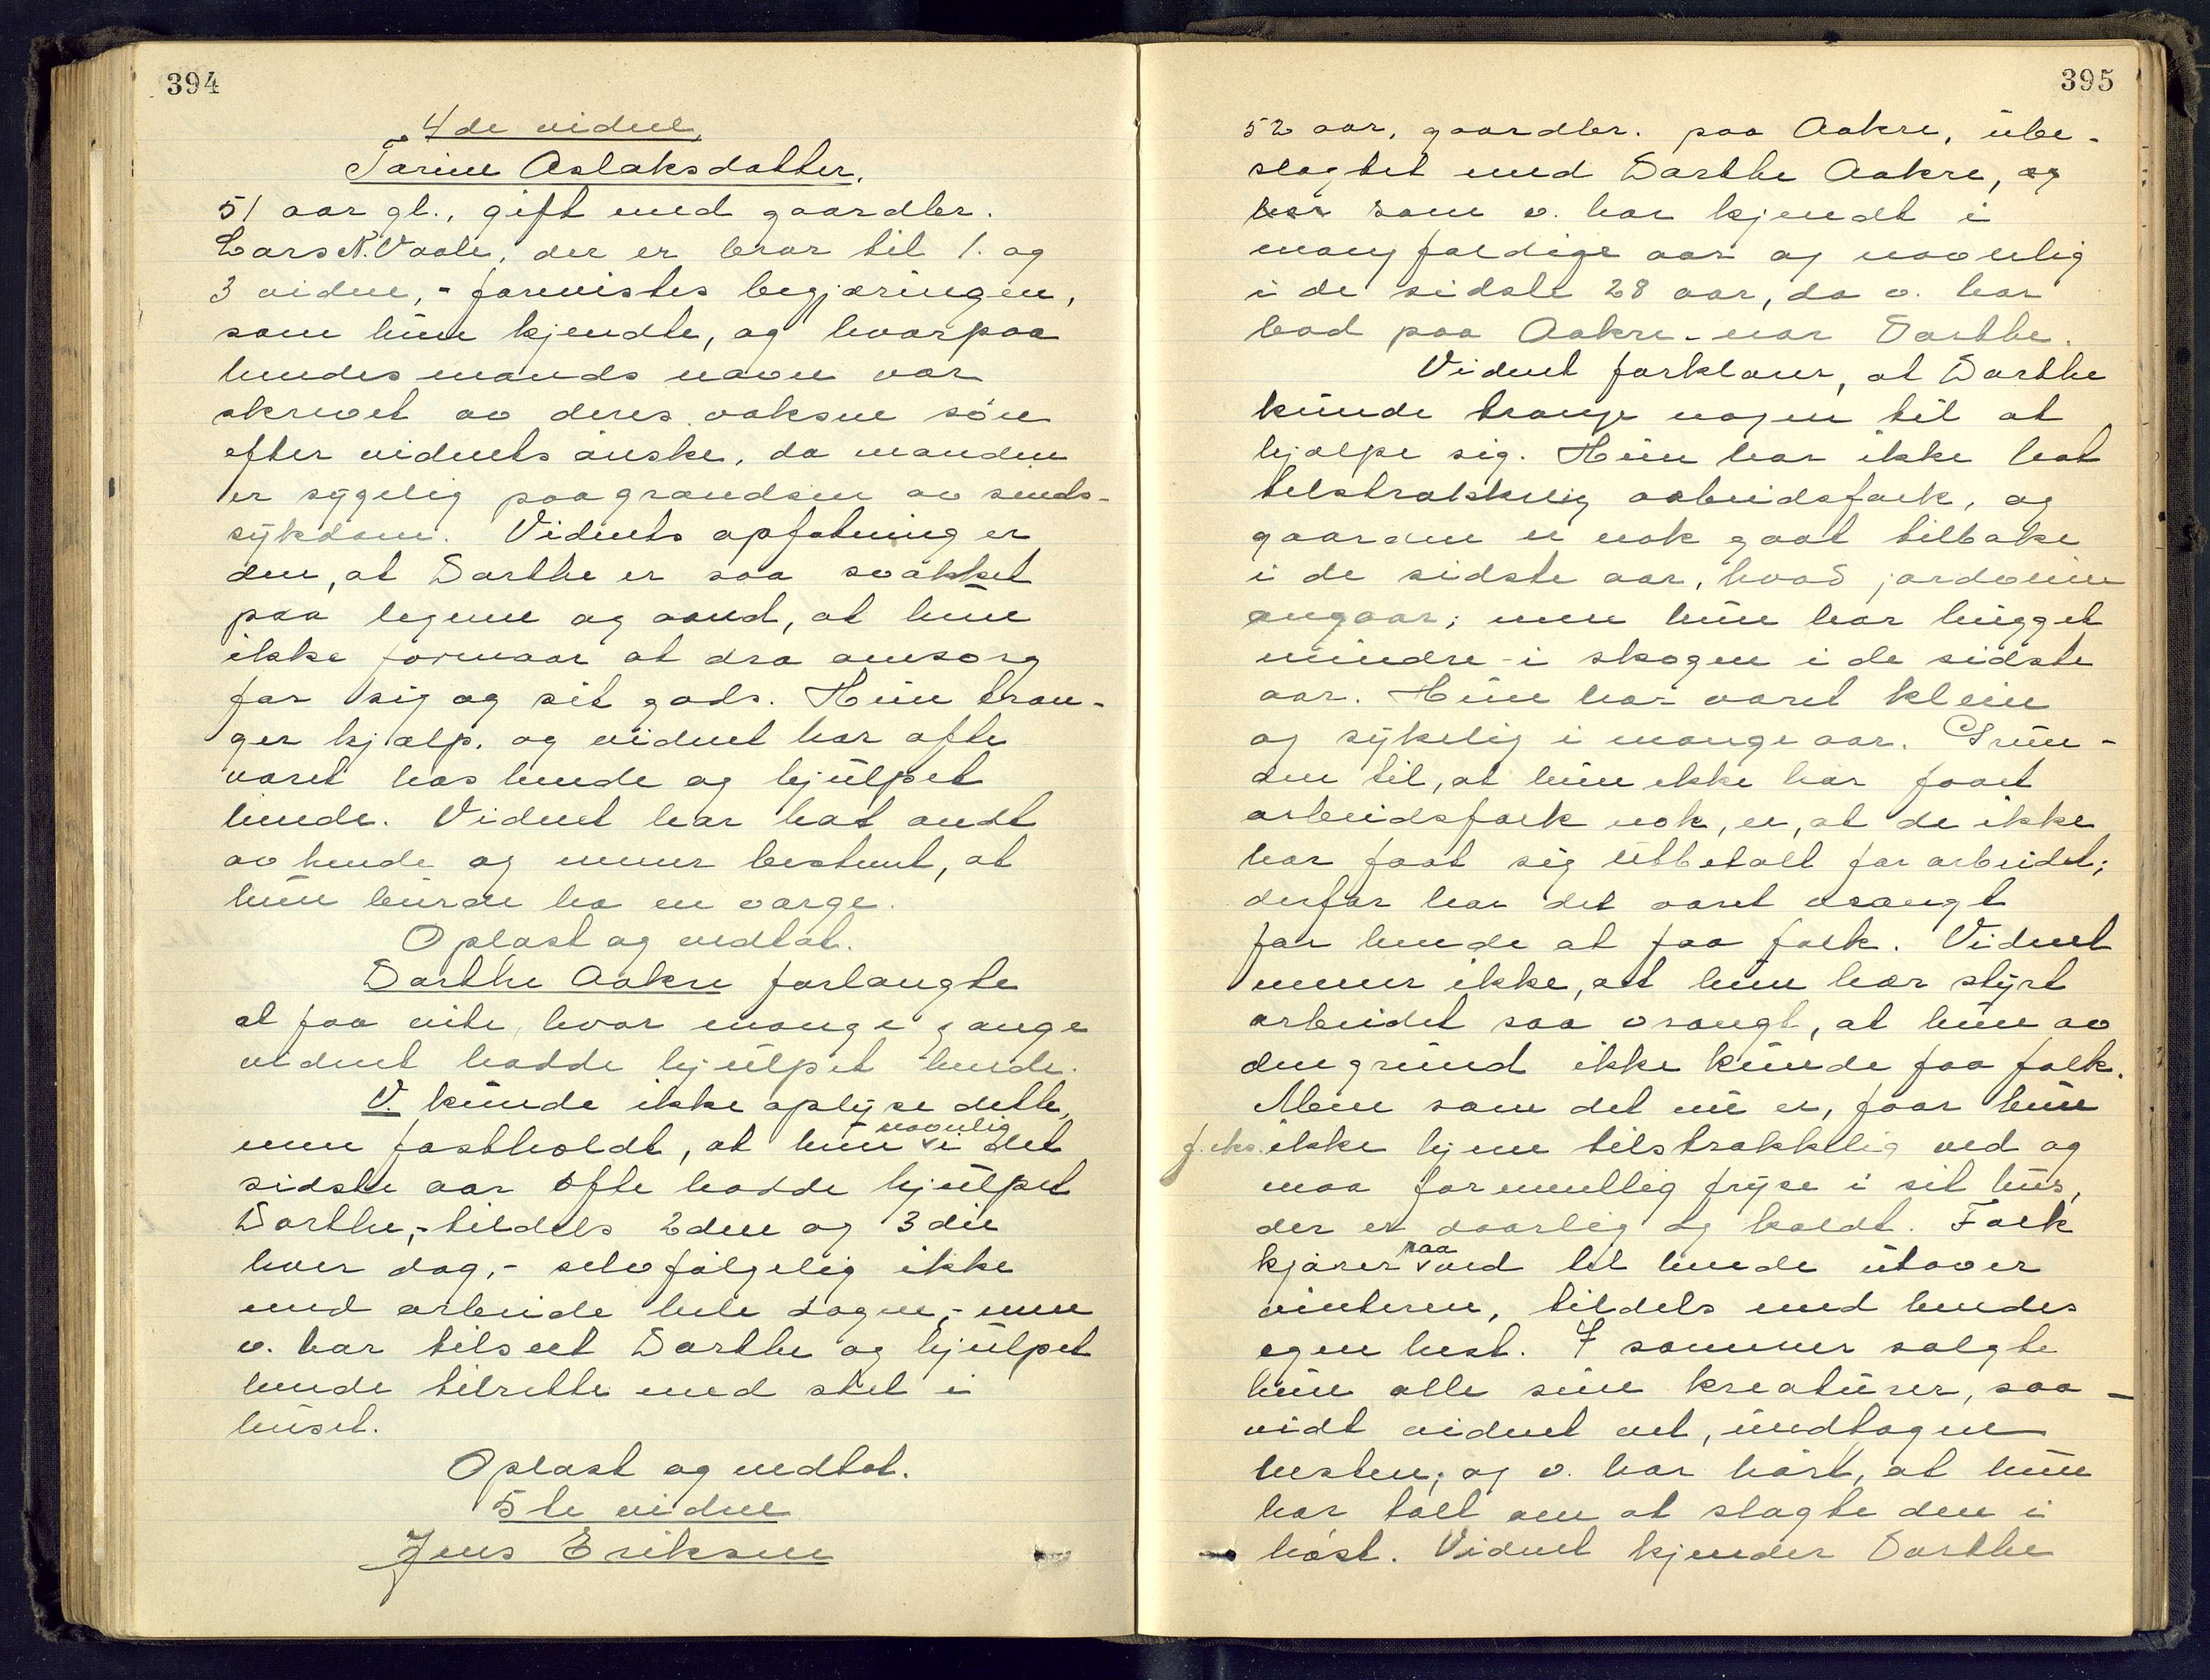 394
4de vidne,
Tarine Aslaksdatter.
51 aar gl., gift med gaardbr.
Lars N. Vaale, der er bror til 1. og
3 vidne, - forevistes begjæringen,
som hun kjendte, og hvorpaa
hendes mands navn var
skrevet av deres voksne søn
efter vidnets ønske, da manden
er sygelig paa grændsen av sinds-
sykdom. Vidnets opfatning er
den, at Dorthe er saa svækket
paa legeme og aand, at hun
ikke formaar at dra omsorg
for sig og sit gods. Hun træn-
ger hjælp, og vidnet har ofte
været hos hende og hjulpet
hende. Vidnet har hat ondt
av hende og mener bestemt, at
hun burde ha en værge.
Oplæst og vedtat.
Dorthe Aakre forlangte
at faa vite, hvor mange gange
vidnet hadde hjulpet hende.
V. kunde ikke oplyse dette,
men fastholdt, at hun navnlig i det
sidste aar ofte hadde hjulpet
Dorthe, - tildels 2den og 3die
hver dag, - selvfølgelig ikke
med arbeide hele dagen, - men
v. har tilseet Dorthe og hjulpet
hende tilrette med stel i
huset.
Oplæst og vedtat.
5te vidne
Jens Eriksen
395
52 aar, gaardbr. paa Aakre, ube-
slægtet med Dorthe Aakre, og
som v. har kjendt i
mangfoldige aar og navnlig
i de sidste 28 aar, da v. har
bod paa Aakre - nær Dorthe.
Vidnet forklarer, at Dorthe
kunde trænge nogen til at
hjælpe sig. Hun har ikke hat
tilstrækkelig arbeidsfolk, og
gaarden er nok gaat tilbake
i de sidste aar, hvad jordveien
angaar; men hun har hugget
mindre i skogen i de sidste
aar. Hun har været klein
og sykelig i mange aar. Grun-
den til, at hun ikke har faaet
arbeidsfolk nok, er, at de ikke
har faat sig utbetalt for arbeidet;
derfor har det været vrangt
for hende at faa folk. Vidnet
mener ikke, at hun har styrt
arbeidet saa vrangt, at hun av
den grund ikke kunde faa folk.
Men som det nu er, faar hun
f. eks. ikke hjem tilstrækkelig ved og
maa formentlig fryse i sit hus,
der er daarlig og koldt. Folk
kjører raa ved til hende utover
vinteren, tildels med hendes
egen hest. I sommer solgte
hun alle sine kreaturer, saa-
vidt vidnet vet, undtagen
hesten; og v. har hørt, at hun
har talt om at slagte den i
høst. Vidnet kjender Dorthe